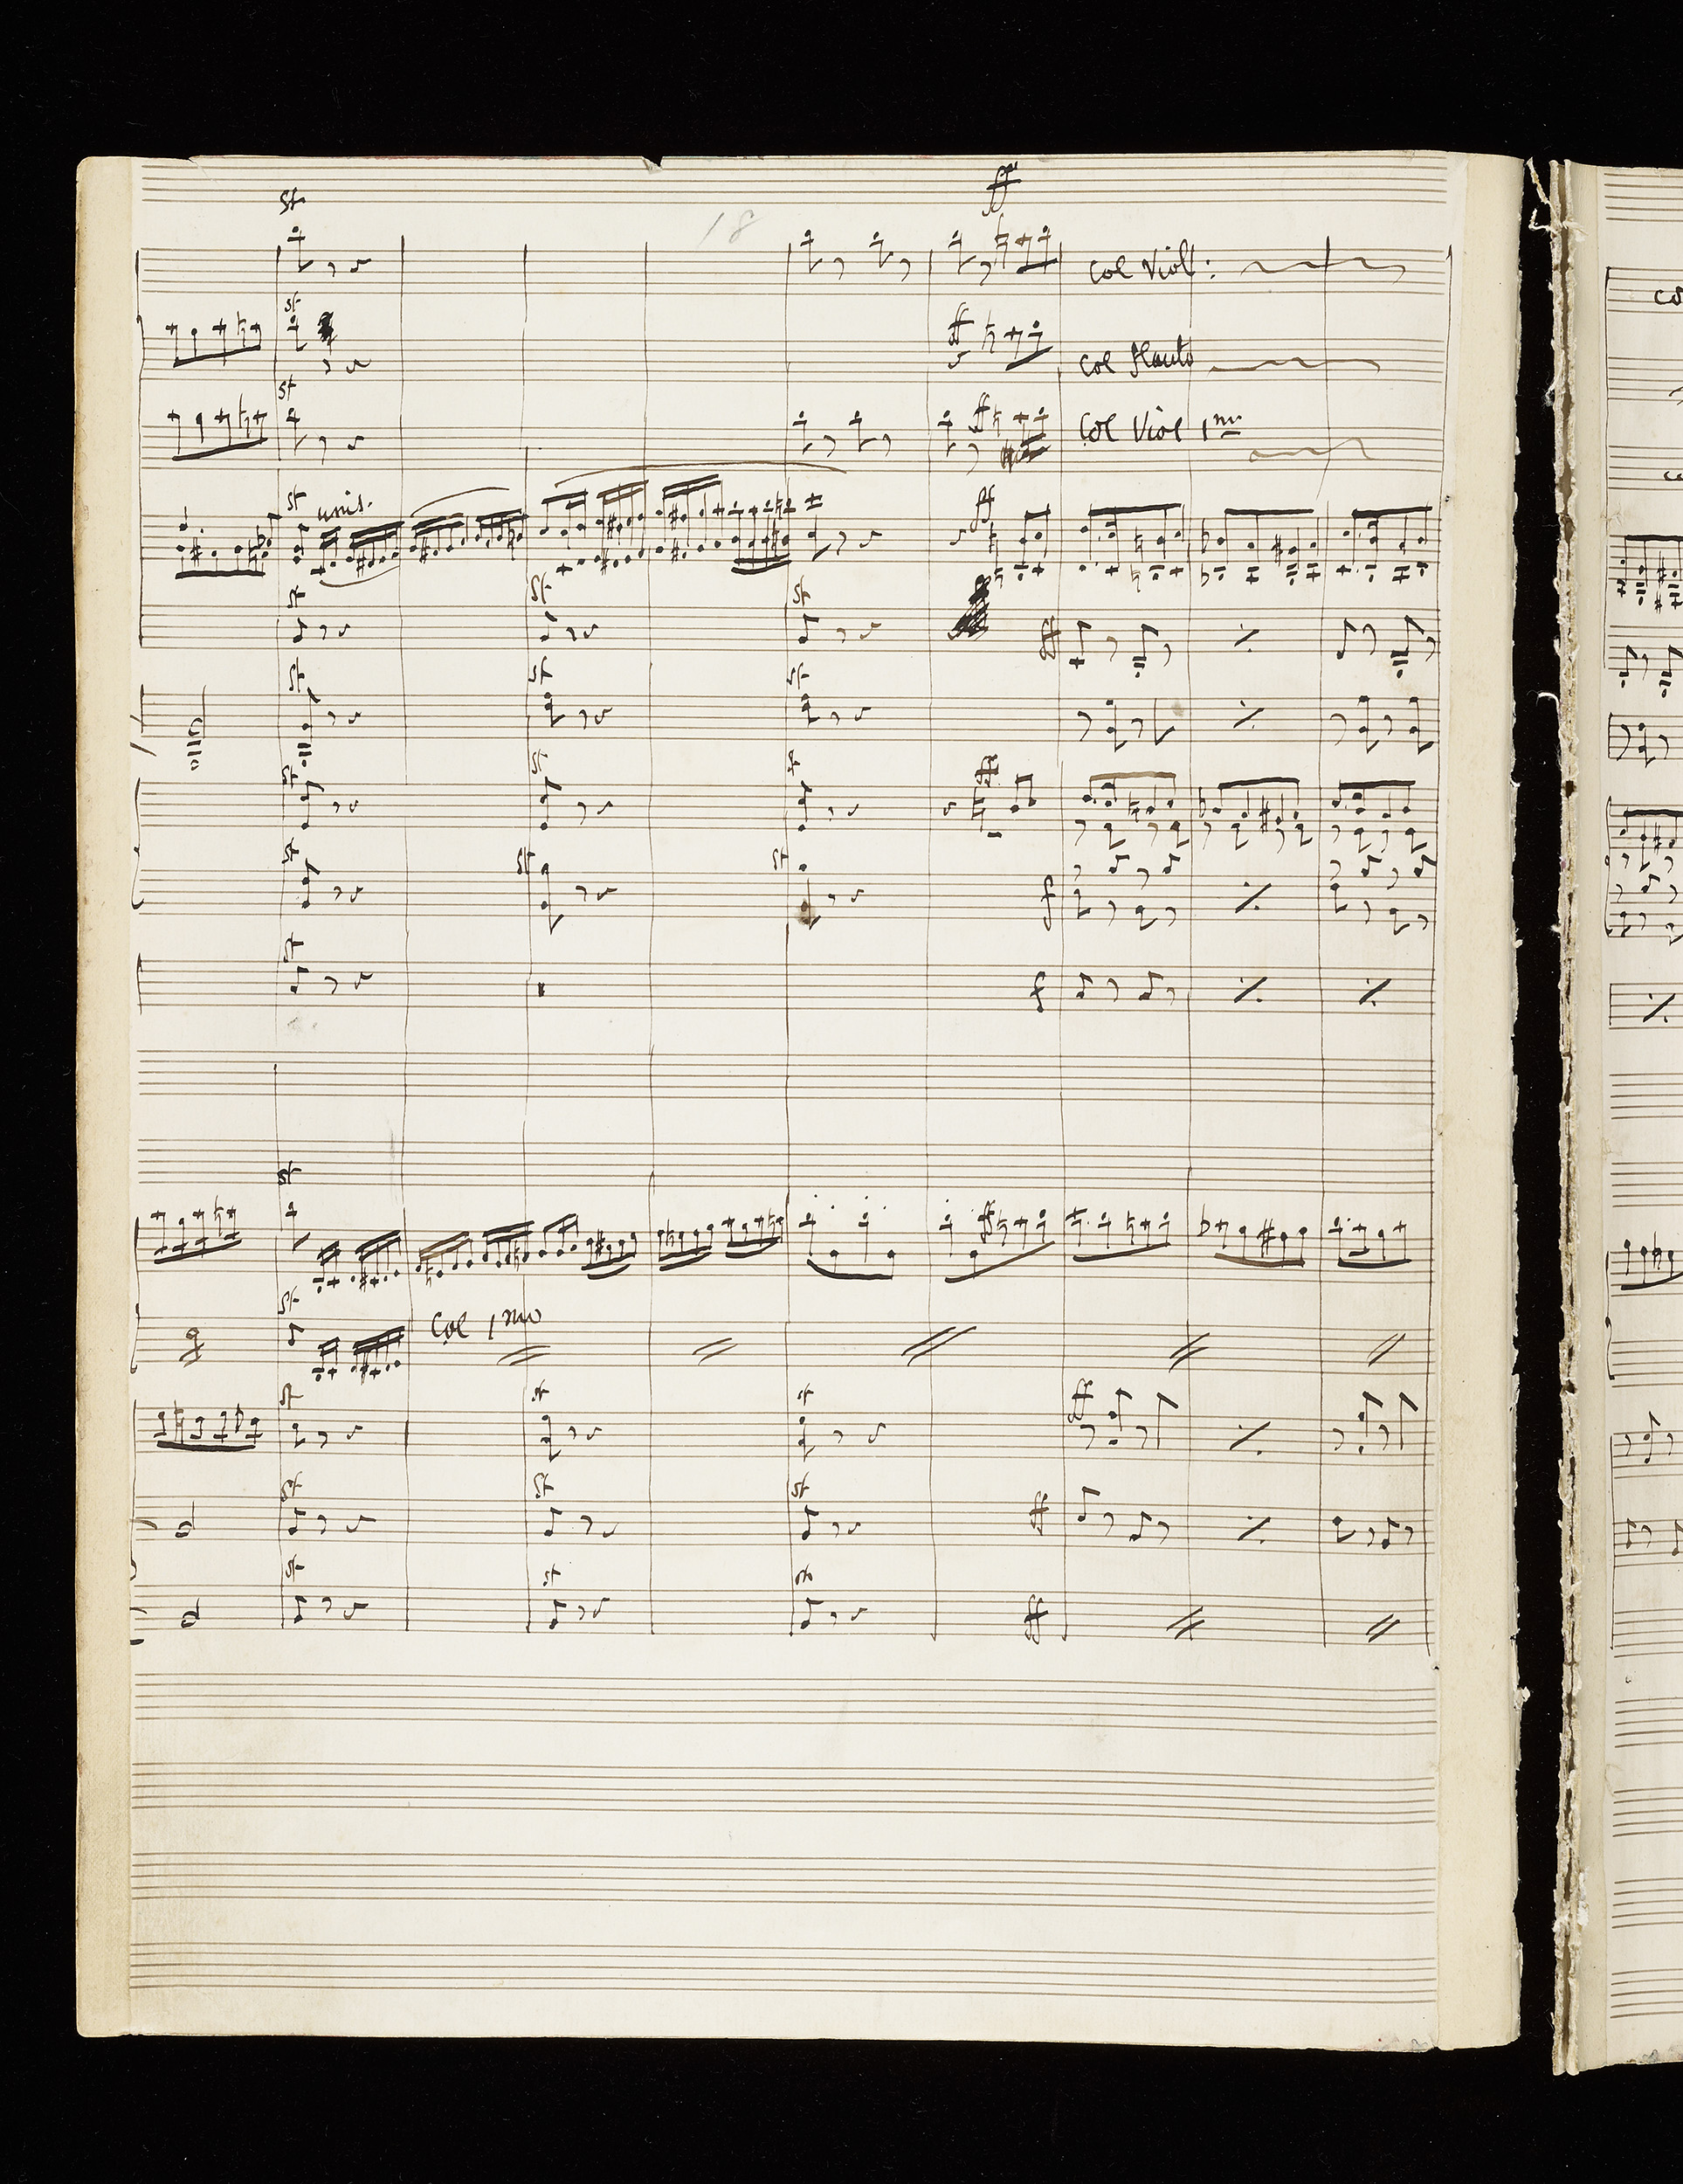 ff
sf
18
Col Viol:
sf
ff
Col Flauto
sf
ff
Col Viol 1mo
sf unis.
ff
sf sf sf
ff
sf sf sf
sf sf sf ff
sf sf sf
f
sf
f
sf
ff
sf
Col 1mo
sf sf sf ff
sf sf sf
ff
sf sf sf
ff